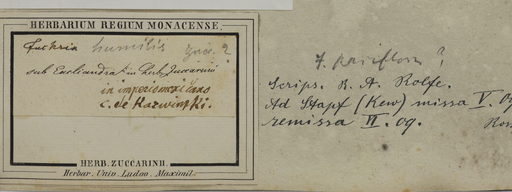 HERBARIUM REGIUM MONACENSE.
Fuchsia humilis Zucc. ?
sub Encliandra in Herb. Zuccarinii
in imperio mexicano
C. de Karwinski.
HERB. ZUCCARINII.
Herbar. Univ. Ludov. Maximil.
F. parviflora ?
Scrips. R. A. Rolfe.
Ad Stapf (Kew) missa V. 09
remissa VI. 09.